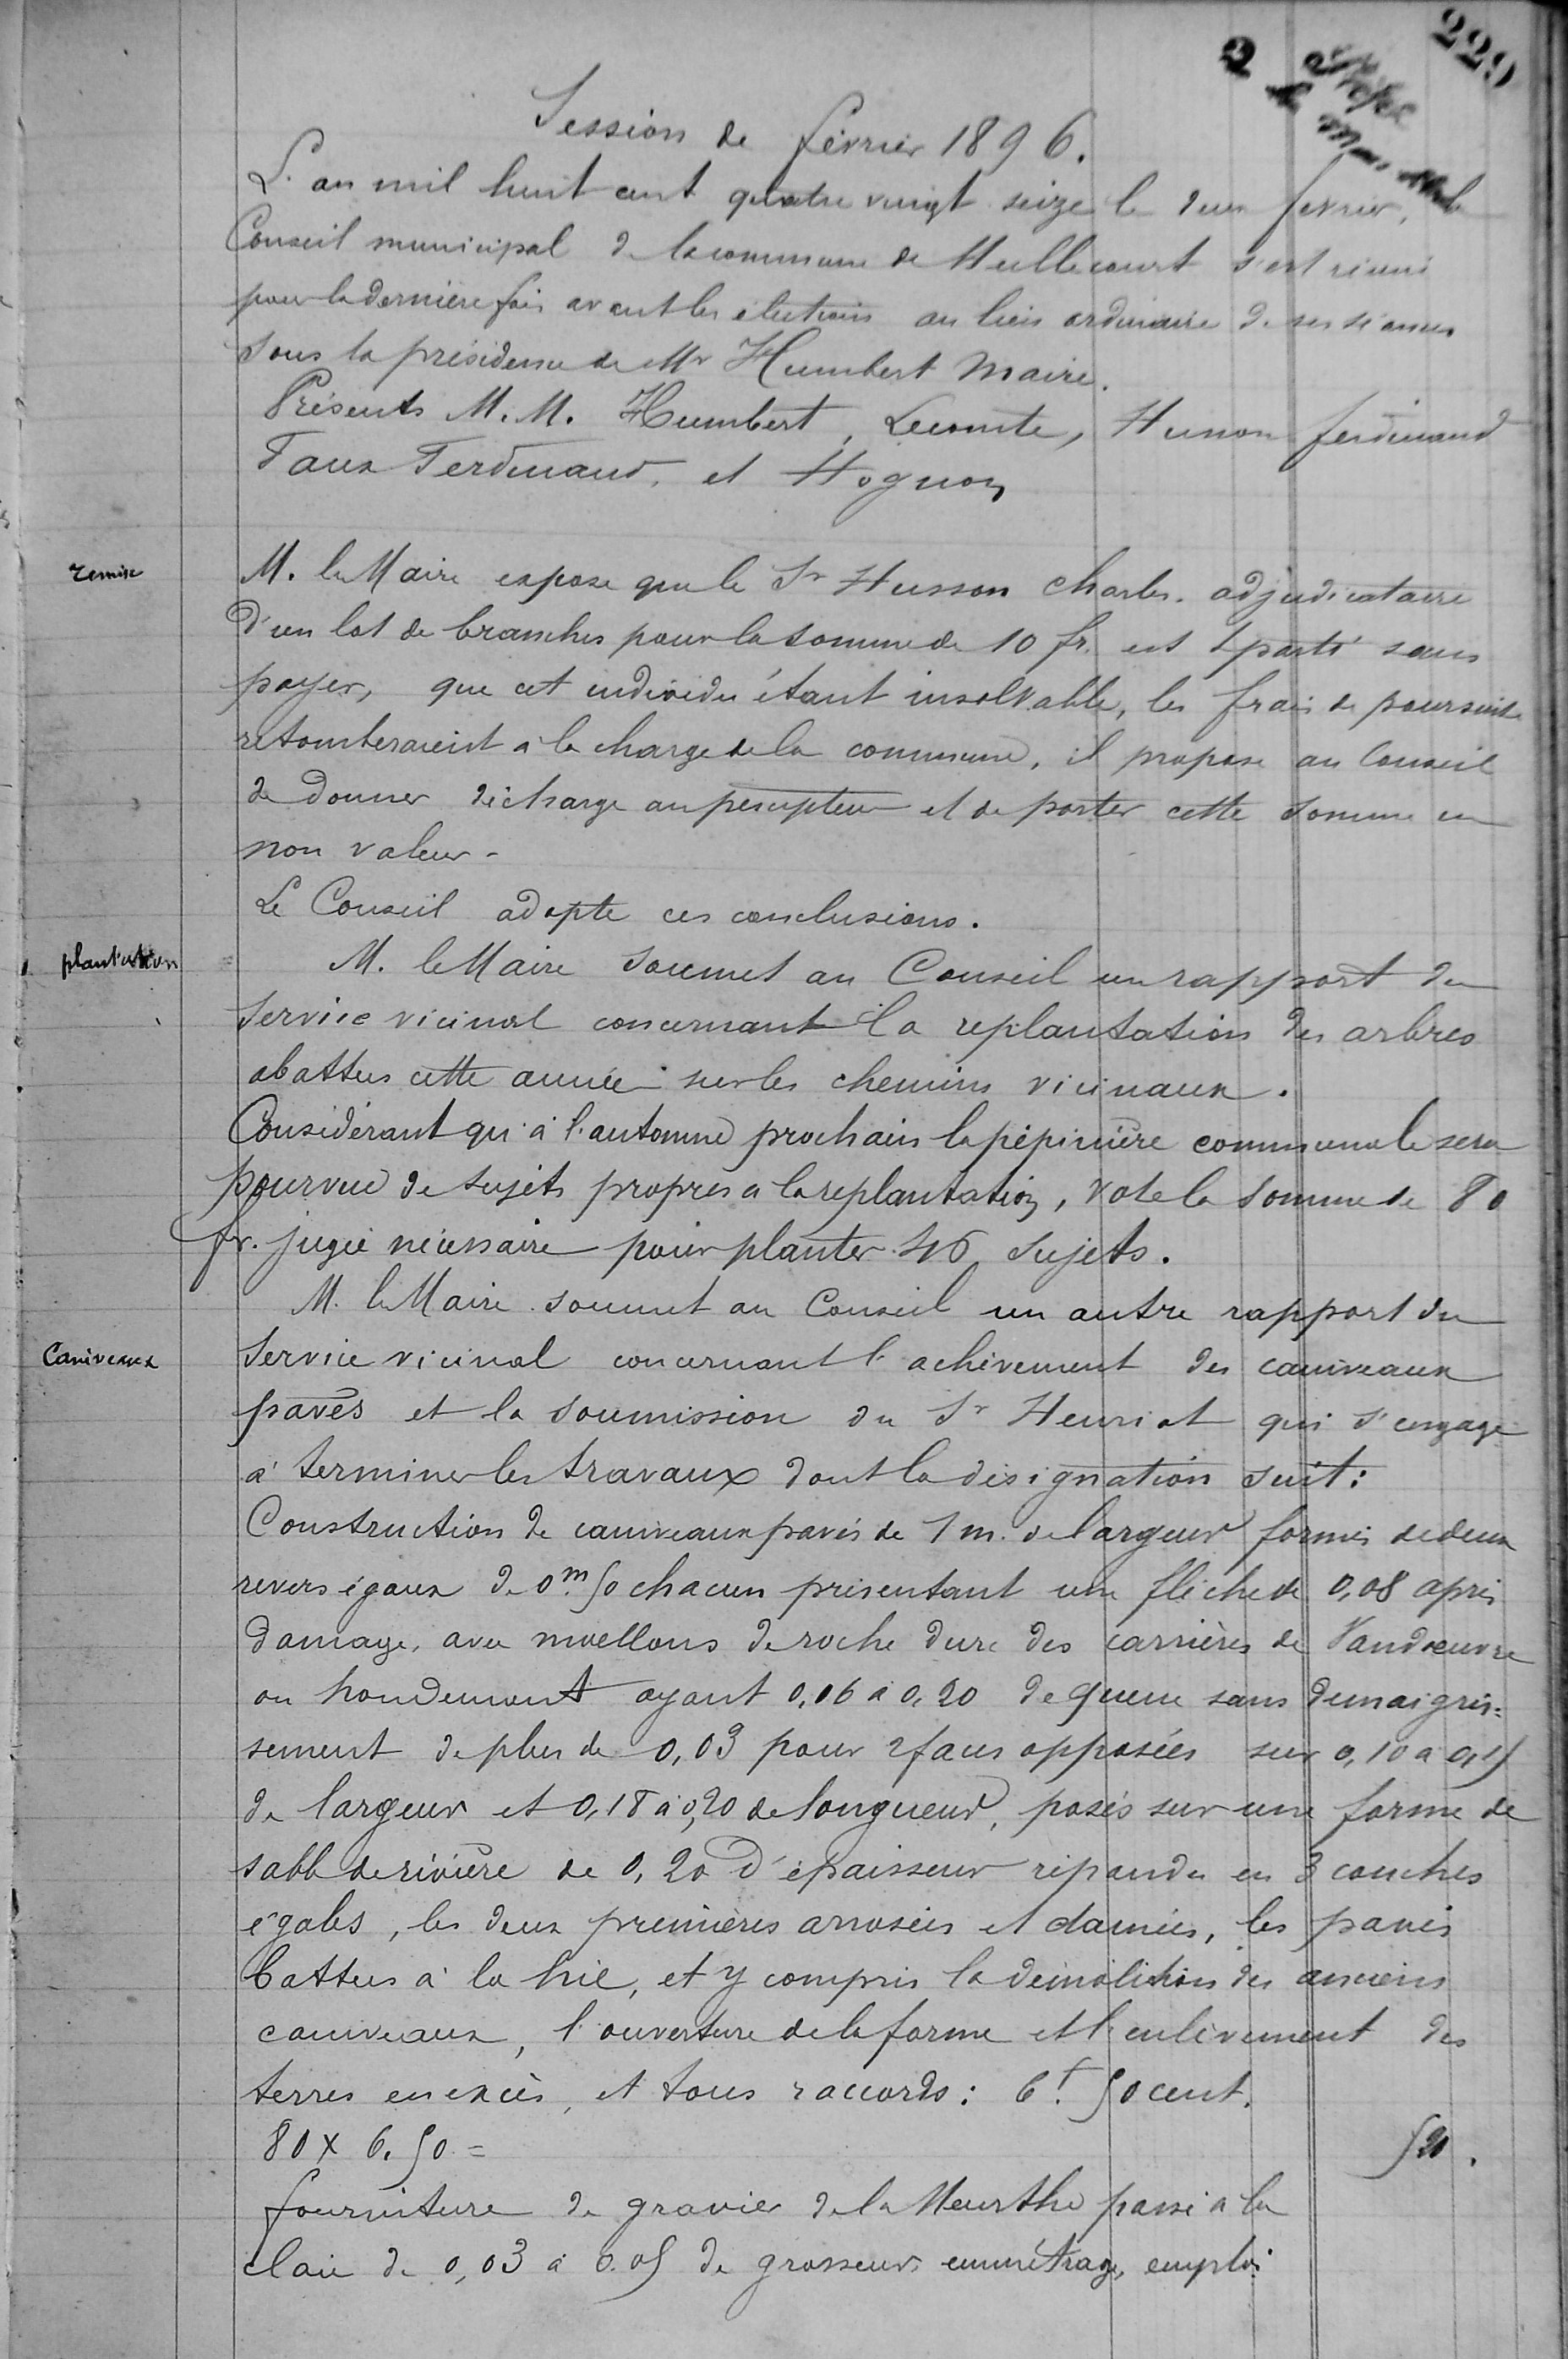 229
2
Session de février 1896.
L'an mil huit cent quatre vingt seize le deux février, le
Conseil municipal de la commune de Heillecourt s'est réuni
pour la dernière fois avant les élections au lieu ordinaire de ses séances
sous la présidence de Mr Humbert Maire.
Présents M.M. Humbert, Lecomte, Husson ferdinand
Faux Ferdinand, et Hognon
remise
M. le Maire expose que le Sr Husson Charles. adjudicataire
d'un lot de branches pour la somme de 10 fr. est parti sans
payer, que cet individu étant insolvable, les frais de poursuite
retomberaient à la charge de la commune, il propose au Conseil
de donner décharge au percepteur et de porter cette somme en
non valeur-
Le Conseil adopte ces conclusions.
plantation
M. le Maire soumet au Conseil un rapport du
Service vicinal concernant la replantation des arbres
abattus cette année sur les chemins vicinaux.
Considérant qu'à l'automne prochain la pépinière communale sera
pourvue de sujets propres a la replantation, vote la somme de 80
fr. jugée nécessaire pour planter 46 sujets.
M. le Maire soumet au Conseil un autre rapport du
Caniveaux
Service vicinal concernant l'achèvement des caniveaux
pavés et la soumission du Sr Henriot qui s'engage
à terminer les travaux dont la désignation suit:
Construction de caniveaux pavés de 1 m. de largeur formés de deux
revers égaux de 0m.50 chacun présentant une flèche de 0,08 après
damage, avec moellons de roche dure des carrières de Vandœuvre
ou houdemont ayant 0,16 à 0,20 de queue sans démaigris-
sement de plus de 0,03 pour 2 faces opposées sur 0,10 a 0,15
de largeur et 0,18 à 0,20 de longueur, posés sur une forme de
sable de rivière de 0,20 d'épaisseur répandu en 3 couches
égales, les deux premières arrosées et damées, les pavés
battus à la hie, et y compris la démolition des anciens
caniveaux, l'ouverture de la forme et l'enlèvement des
terres en excès, et tous raccords: 6f. 50 cent.
80 x 6.50 =
520.
fourniture de gravier de la Meurthe passé a la
claie de 0,03 à 0.05 de grosseur, emmétrage, emploi